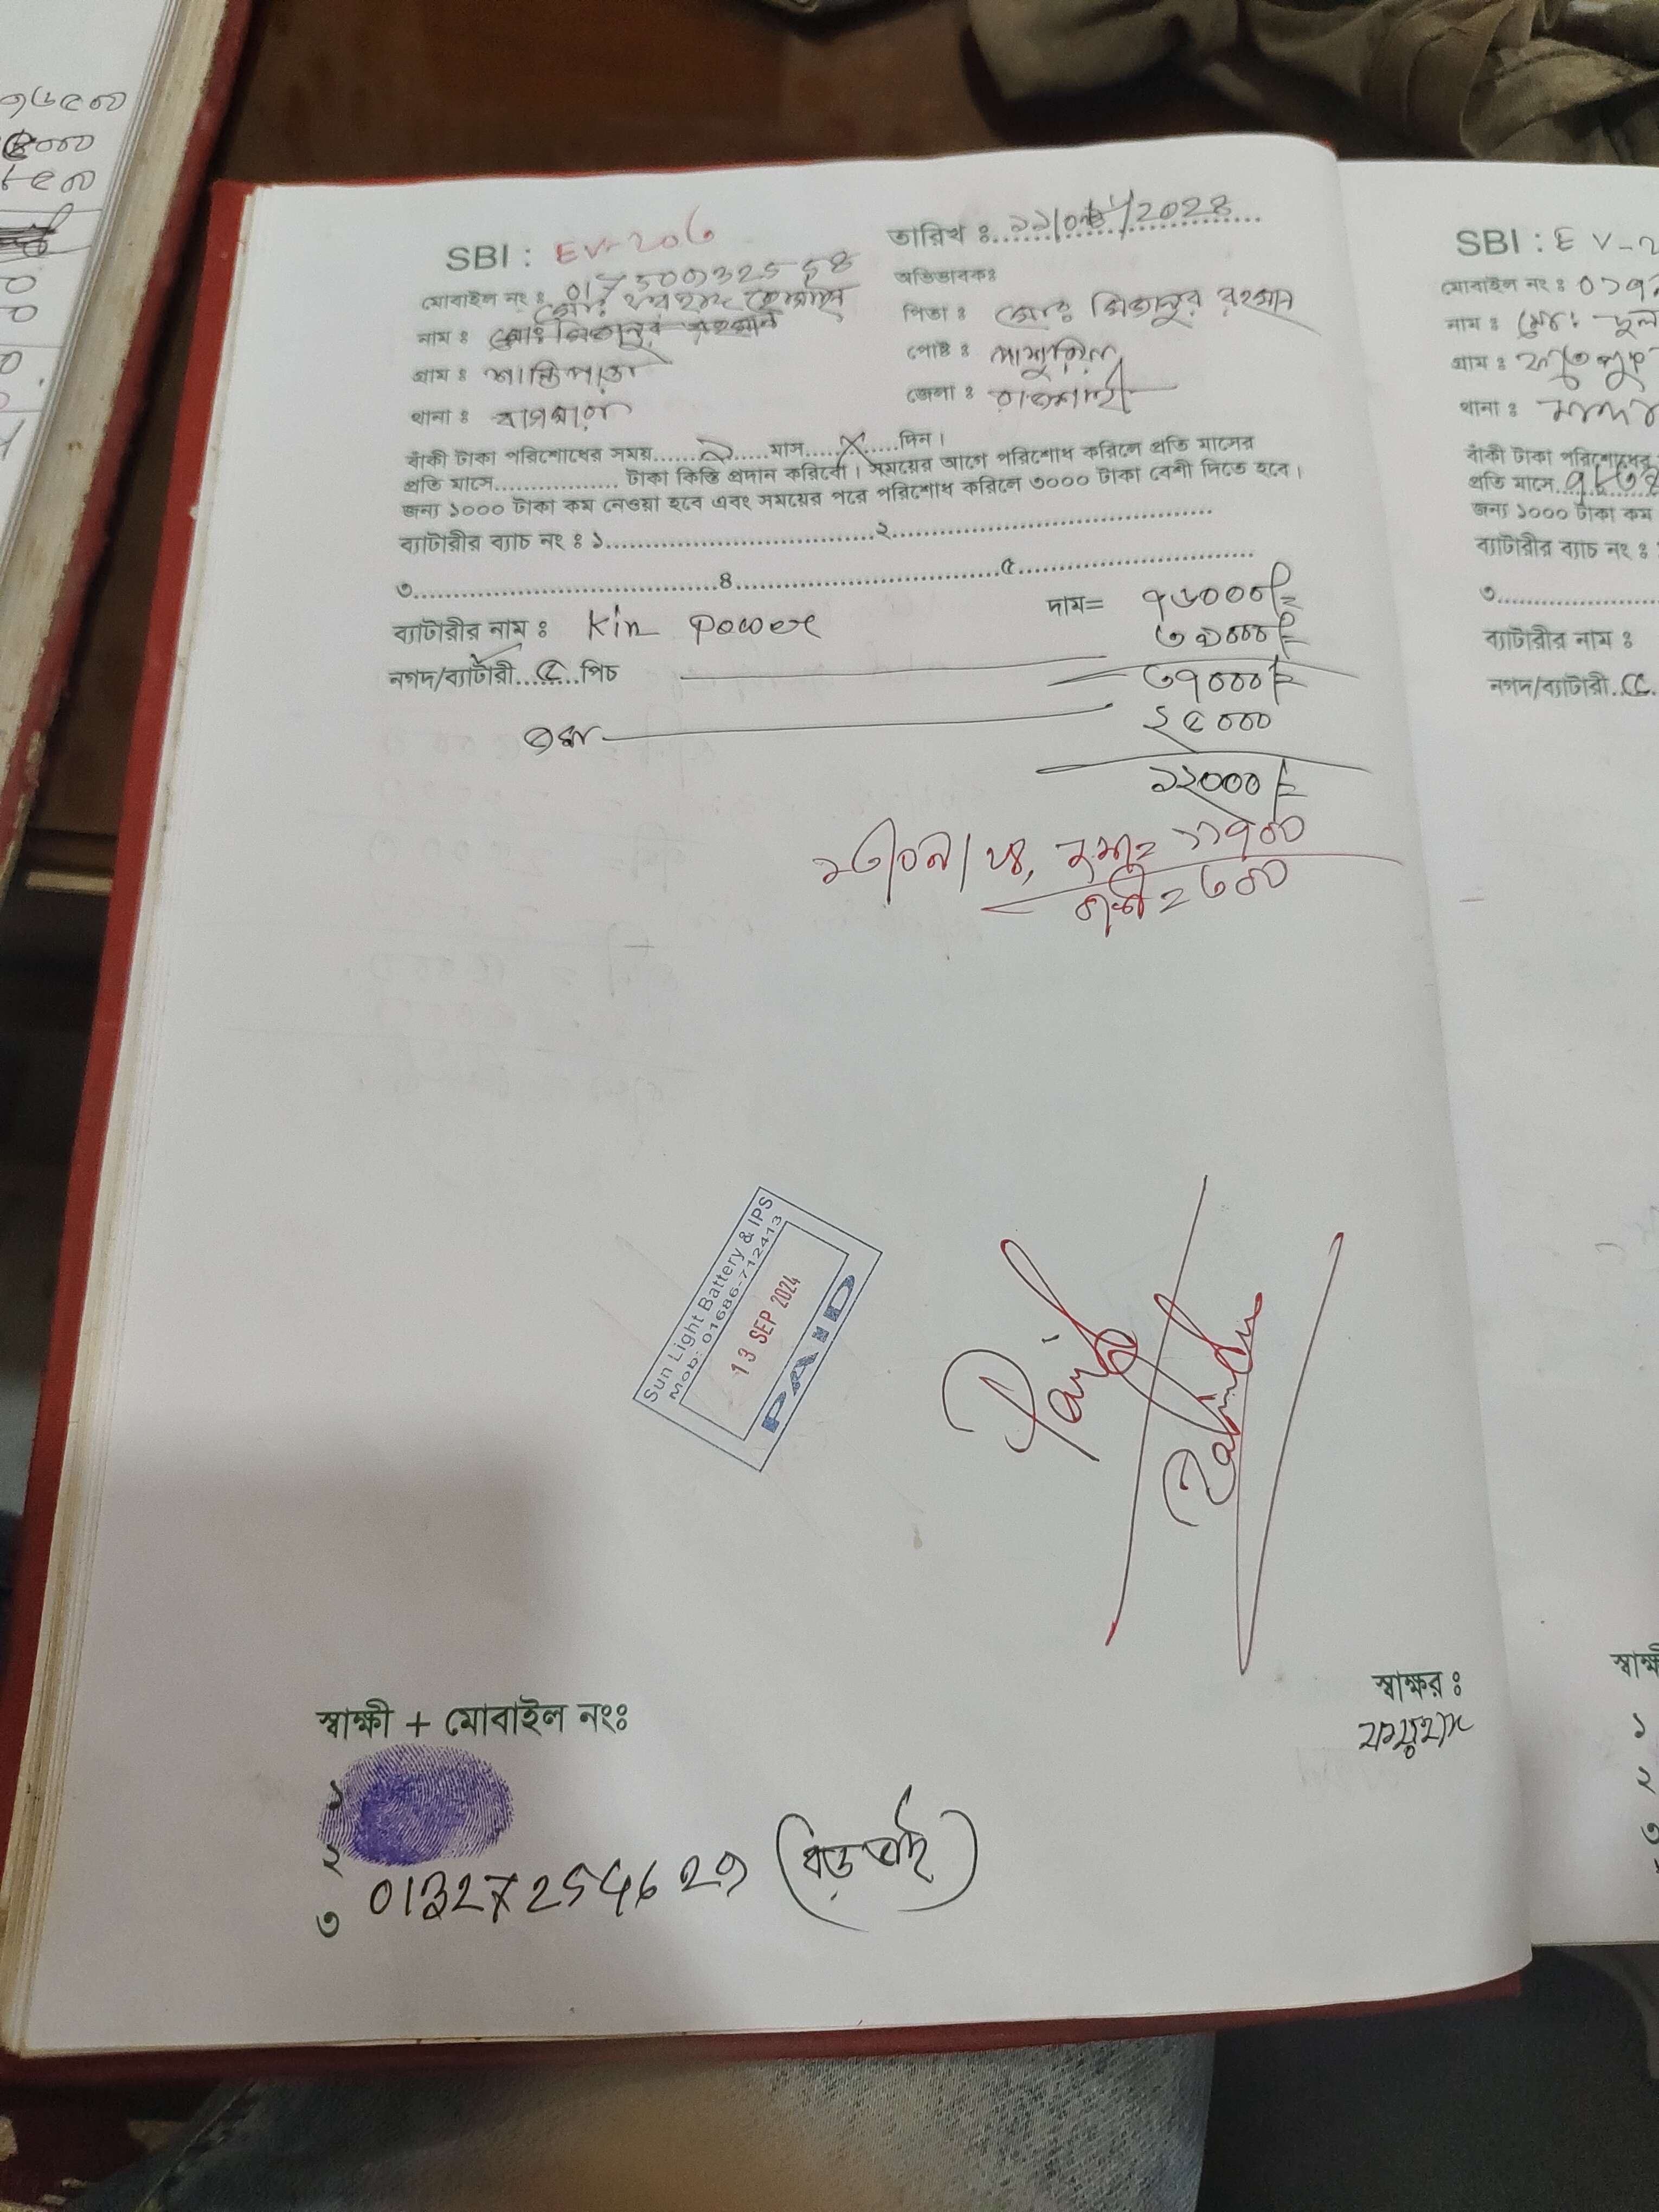 ৭৬৫০০
৫০০০
৮৫০০
SBI : EV-206
তারিখ ঃ ১১/০৮/2024
মোবাইল নং ঃ
অভিভাবকঃ
নাম ঃ মোঃ মিজানুর রহমান
পিতা ঃ মোঃ মিজানুর রহমান
গ্রাম ঃ
পোষ্ট ঃ
থানা ঃ বাগমারা
জেলা ঃ রাজশাহী
বাঁকী টাকা পরিশোধের সময় ১ মাস X দিন।
প্রতি মাসে.................. টাকা কিস্তি প্রদান করিবো। সময়ের আগে পরিশোধ করিলে প্রতি মাসের
জন্য ১০০০ টাকা কম নেওয়া হবে এবং সময়ের পরে পরিশোধ করিলে ৩০০০ টাকা বেশী দিতে হবে।
ব্যাটারীর ব্যাচ নং ঃ ১........................................২................................................
৩.............................................৪.......................................৫...................................
ব্যাটারীর নাম ঃ Kin Power
দাম= ৭৬০০০/=
৩৯০০০/=
নগদ/ব্যাটারী ৫ পিচ
৩৭০০০/=
জমা
২৫০০০
১২০০০/=
জমা= ১১৭০০
বাকী = ৩০০
Sun Light Battery & IPS
Mob: 01686-712413
13 SEP 2024
PAID
Paid
স্বাক্ষর ঃ
ফরহাদ
স্বাক্ষী + মোবাইল নংঃ
১
২
৩ 01327254629 (বড় ভাই)
SBI : EV-2
মোবাইল নং ঃ
নাম ঃ মোঃ
গ্রাম ঃ
থানা ঃ
বাঁকী টাকা পরিশোধের
প্রতি মাসে
জন্য ১০০০ টাকা কম
ব্যাটারীর ব্যাচ নং ঃ
৩
ব্যাটারীর নাম ঃ
নগদ/ব্যাটারী ৫
স্বাক্ষী
১
২
৩